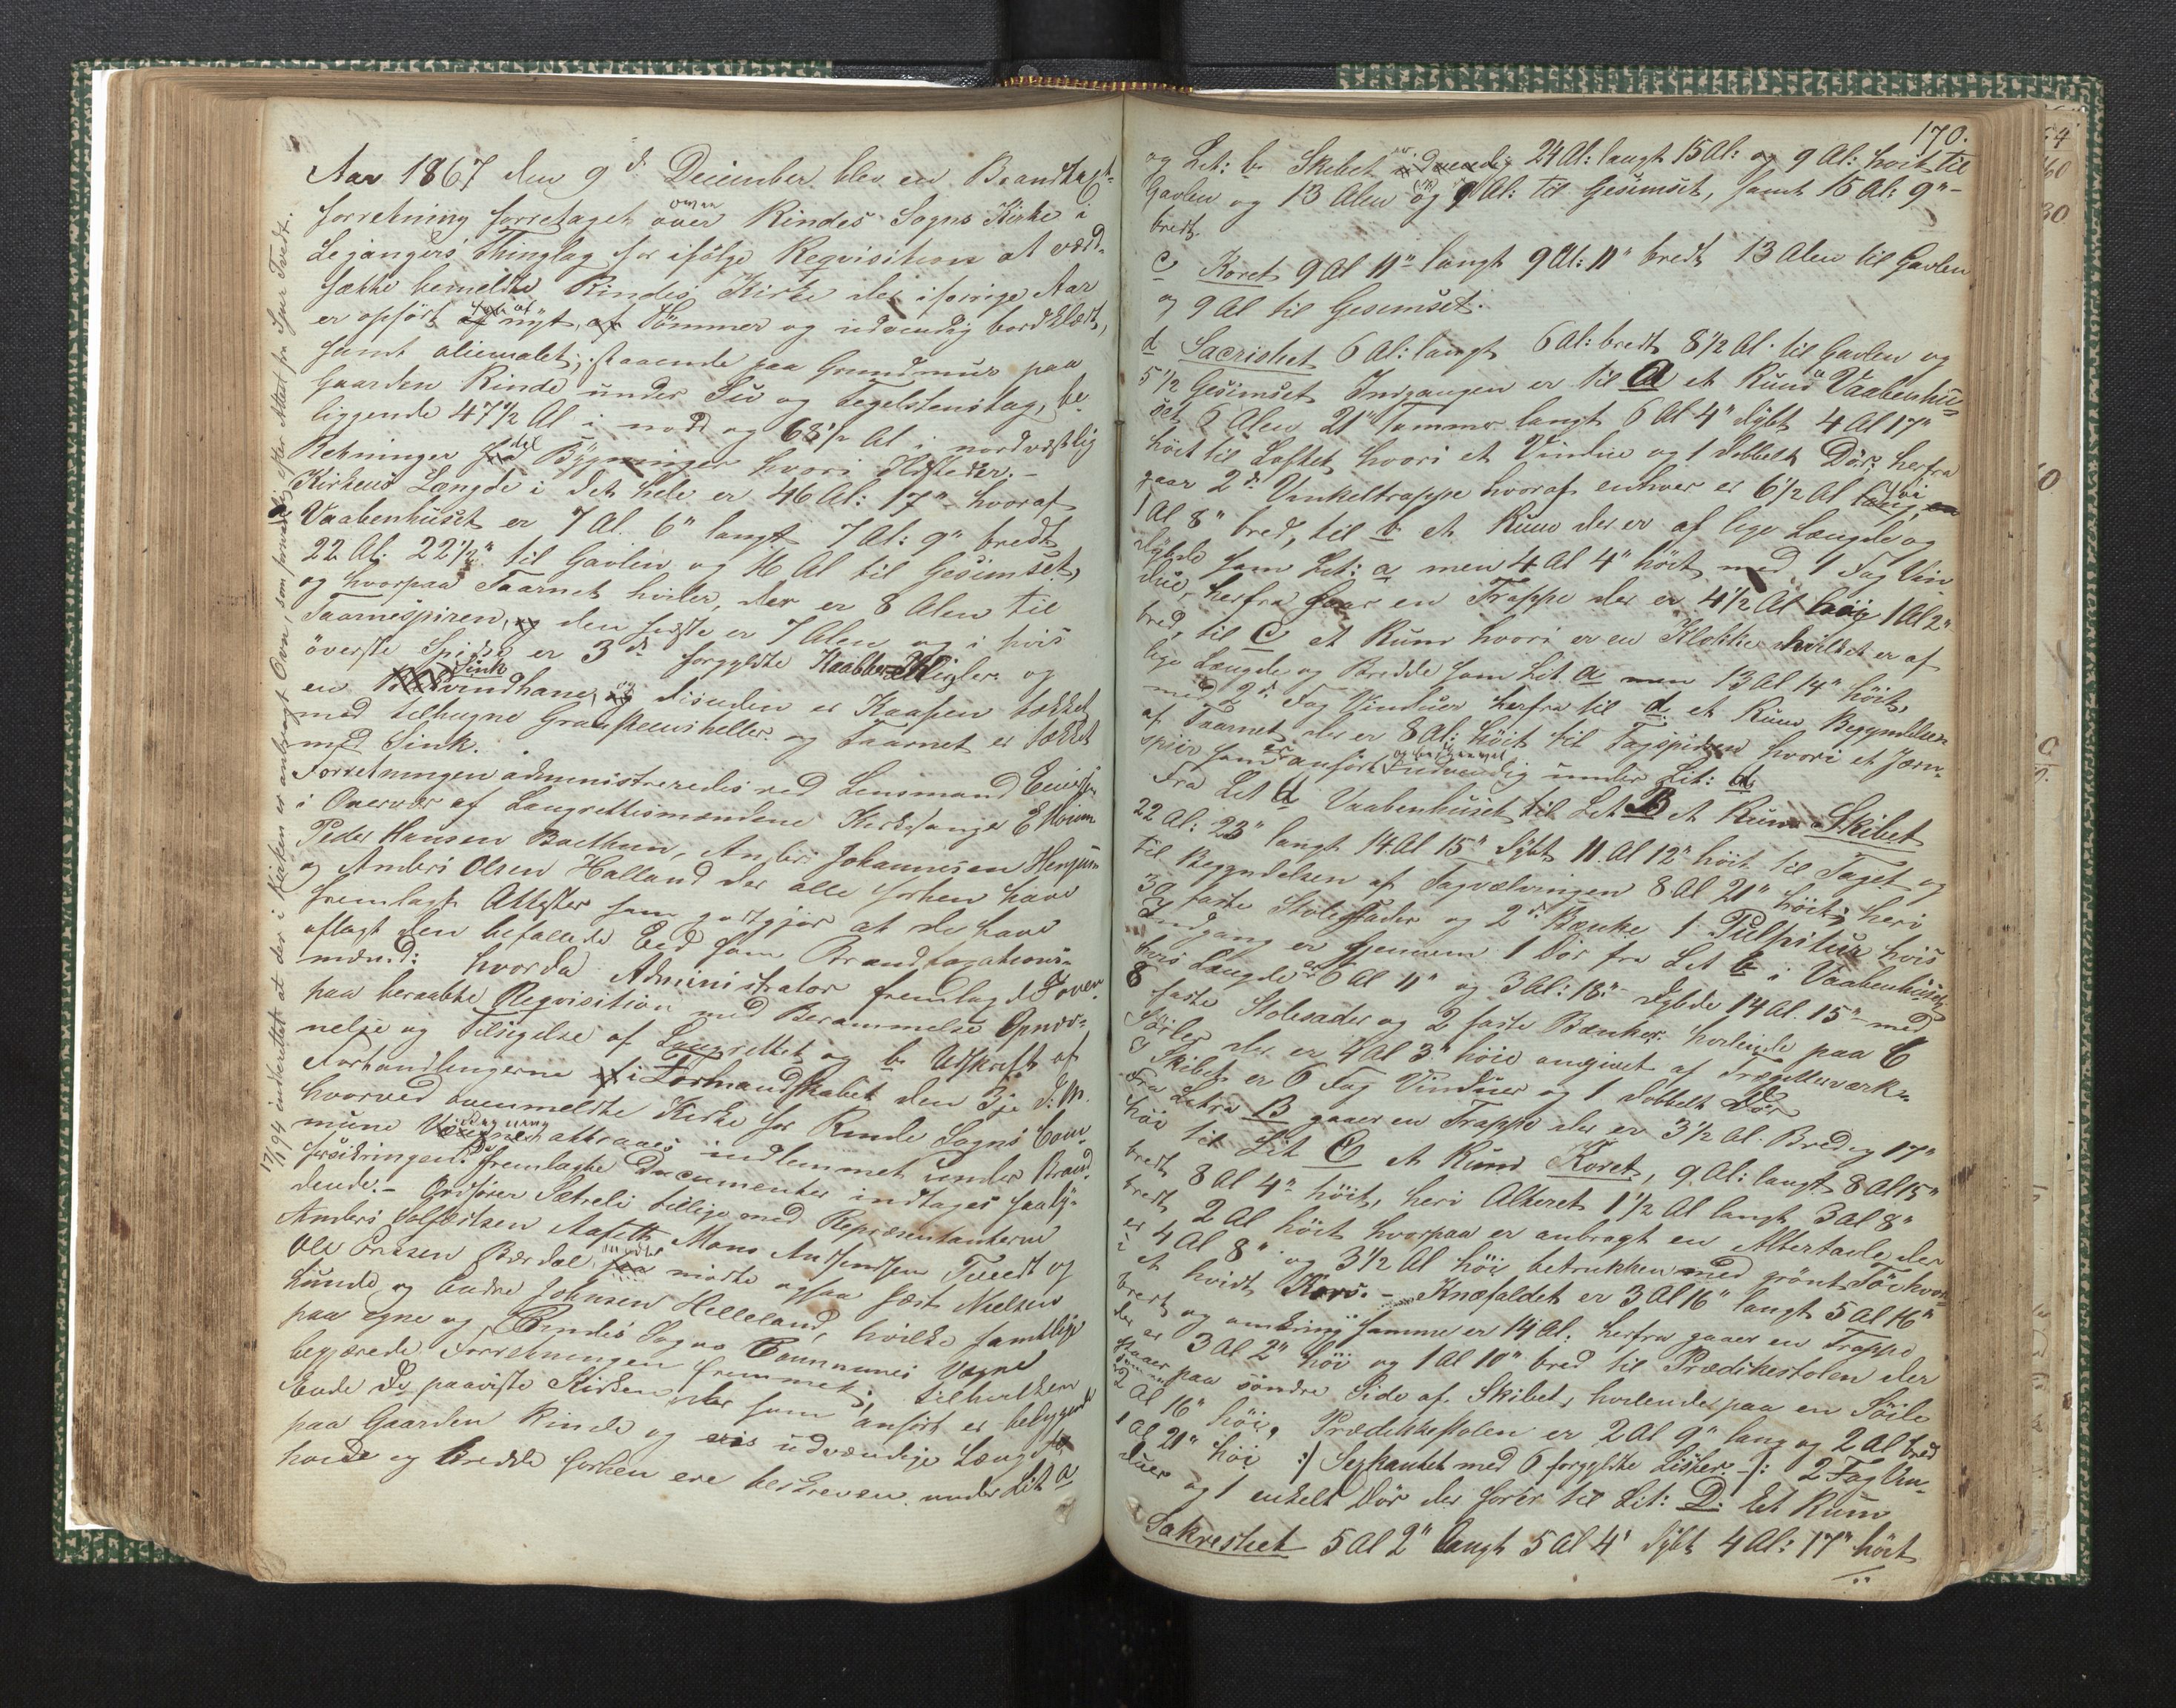 Aar 1867 den 9d December blev en Brandtaxt-
forretning forretaget over Rindes Sogns Kirke i
Leganger's Thinglag for ifölge Reqvisition at værd-
sætte bemeldte Rindes Kirke der i forrige Aar
er opfört af nyt, af Tömmer og udvendig bordklædt,
samt oliemalet, staaende paa Grundmur paa
Gaarden Rinde under Siv og Tegelstenstag, be-
liggende 47 1/2 Al i nord og 68 1/2 Al i nordvestlig
Retninger fra Bygninger hvori Ildsteder. -
Kirkens Længde i det hele er 46 Al: 17" hvoraf
Vaabenhuset er 7 Al. 6" langt 7 Al: 9" bredt
22 Al: 22 1/2" til Gavlen og 16 Al til Gesimset,
og hvorpaa Taarnet hviler, der er 8 Alen til
Taarnespiren, og den sidste er 7 Alen og i hvis
överste Spidse er 3de forgyldte Kaabber Kugler og
en Sink vindhane, og desuden er Kaafen tækket
med tilhugne Graasteensheller og Taarnet er tækket
med Sink.
Forretningen administreredes ved Lensmand
i Overvær af Laugrettesmændene Kirkesanger E
Peder Hansen Baethun, Anders Johannesen Henjum
og Anders Olsen Halland der alle forhen have
fremlagt Attester som godtgjör at de have
aflagt den befalede Eed som Brandtaxations-
mænd: hvorda Administrator fremlagde Foven
paa beraabte Reqvisition med Berammelse Opnæv-
nelse og Tilsigelse af Laugrettet og b. Udskrift af
Forhandlingerne i Formandskabet den 3je d: M.
hvorved ovenmeldte Kirke for Rinde Sogns Com-
mune attraaes indlemmet under Brand
forsikringen. fremlagte Documenter indtages saaly-
dende. - Ordförer Sætreli tillige med Repræsentanterne
Anders Aafeth Mons Andsendsen Tveedt og
Ole Erasen Bærdal mödte ogsaa Nielsen
Hunde og Endre Johnsen Helleland, hvilke samtlige
paa egne og Rindes Sogns Communes Vegne
begjærede Forretningen fremmet, tilhvilken
Ende de paaviste Kirken der som anfört er bebygget
paa Gaarden Rinde og hvis udvendige Længde
höide og Bredde forhen ere beskreven under Lit a
17/11 94 indberettet at der i Kirken er anbragt Ovn, som forevist efter Attest fra Sjur Tvedt.
170.
og Lit: b. Skibet 24 Al: langt 15 Al: og 9 Al: höit til
Gavlen og 13 Alen og 9 Al: til Gesimset, samt 15 Al: 9"
bredt.
c Koret 9 Al 11" langt 9 Al: 11" bredt 13 Alen til Gavlen
og 9 Al til Gesimset.
d Sacristiet 6 Al: langt 6 Al: bredt 8 1/2 Al til Gavlen og
5 1/2 Gesimset Indgangen er til A et Ruum Vaabenhu-
set 6 Alen 21" Tommer langt 6 Al 4" dybt 4 Al 17"
höit til Loftet, hvori et Vindue og 1 dobbelt Dör, herfra
gaar 2de Vinkeltrappe hvoraf enhver er 6 1/2 Al lang,
1 Al 8" bred, til b et Ruum der er af lige Længde og
dybde som Lit: a men 4 Al 4" höit med 1 Fag Vin-
due, herfra gaar en Trappe der er 4 1/2 Al höi 1 Al 2"
bred, til C et Rum hvori er en Klokke hvilket er af
lige Længde og Bredde som Lit a men 13 Al 14" höit
med 2de Fag Vinduer herfra til d et Ruum Begyndelsen
af Taarnet der er 8 Al: höit til Tagspiren hvori et Jern-
spiir som er anfört udvendig under Lit: a.
Fra Lit a Vaabenhuset til Lit B et Ruum Skibet
22 Al: 23" langt 14 Al 15" dybt 11 Al 12" höit til Taget og
til Begyndelsen af Tagvælvingen 8 Al 21" höit; heri
30 faste Stolestader og 2de Bænke 1 Pulpitur hvis
Indgang er gjennem 1 Dör fra Lit b i Vaabenhuset
hvis Længde er 6 Al 11" og 3 Al: 18" dybde 14 Al. 15" med
8 faste Stolesader og 2 faste Bænker hvilende paa 6
Söiler der er 4 Al 3" höie omgivet af Trægitterværk
i Skibet er 6 Fag Vinduer og 1 dobbelt Dör
Fra Litra B gaaer en Trappe der er 3 1/2 Al. Bred og 17"
höi til Lit C et Ruum Koret, 9 Al: langt 8 Al 15"
bredt 8 Al 4" höit, heri Alteret 1 1/2 Al langt 3 Al 8"
bredt 2 Al höit hvorpaa er anbragt en Altertavle der
er 4 Al 8" og 3 1/2 Al höi betrukken med grönt Töi hvor-
i et hvidt Kors. - Knæfaldet er 3 Al 16" langt 5 Al 16"
bredt og omkring samme er 14 Al: herfra gaaer en Trappe
der er 3 Al 2" höi og 1 Al 10" bred til Prædikestolen der
staaer paa söndre Side af Skibet, hvilende paa en Söile
2 Al 16" höi, Prædikestolen er 2 Al 9" lang og 2 Al bred
1 Al 21" höi :/ Sexkantet med 6 forgyldte Lister /: 2 Fag Vin-
duer og 1 enkelt Dör der förer til Lit: D. Et Rum
Sakrestiet 5 Al 2" langt 5 Al 4" dybt 4 Al: 17" höit